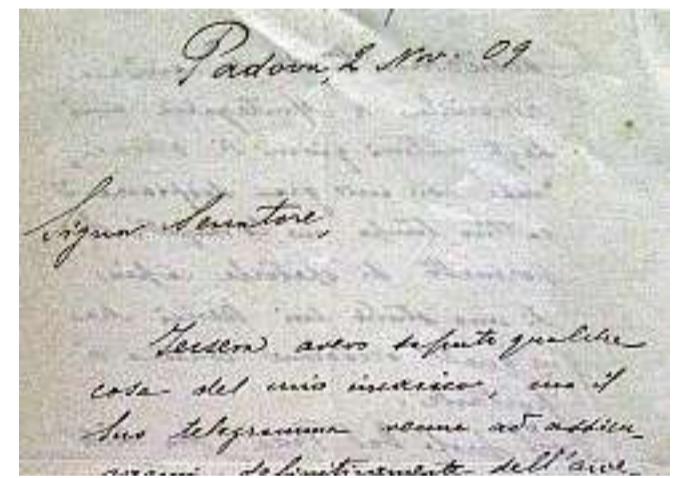 Padova, 2 Nov. 09
Signor Senatore,
Iersera avevo saputo qualche
cosa del mio incarico, ma il
Suo telegramma venne ad assicu-
rarmi definitivamente dell'avve-